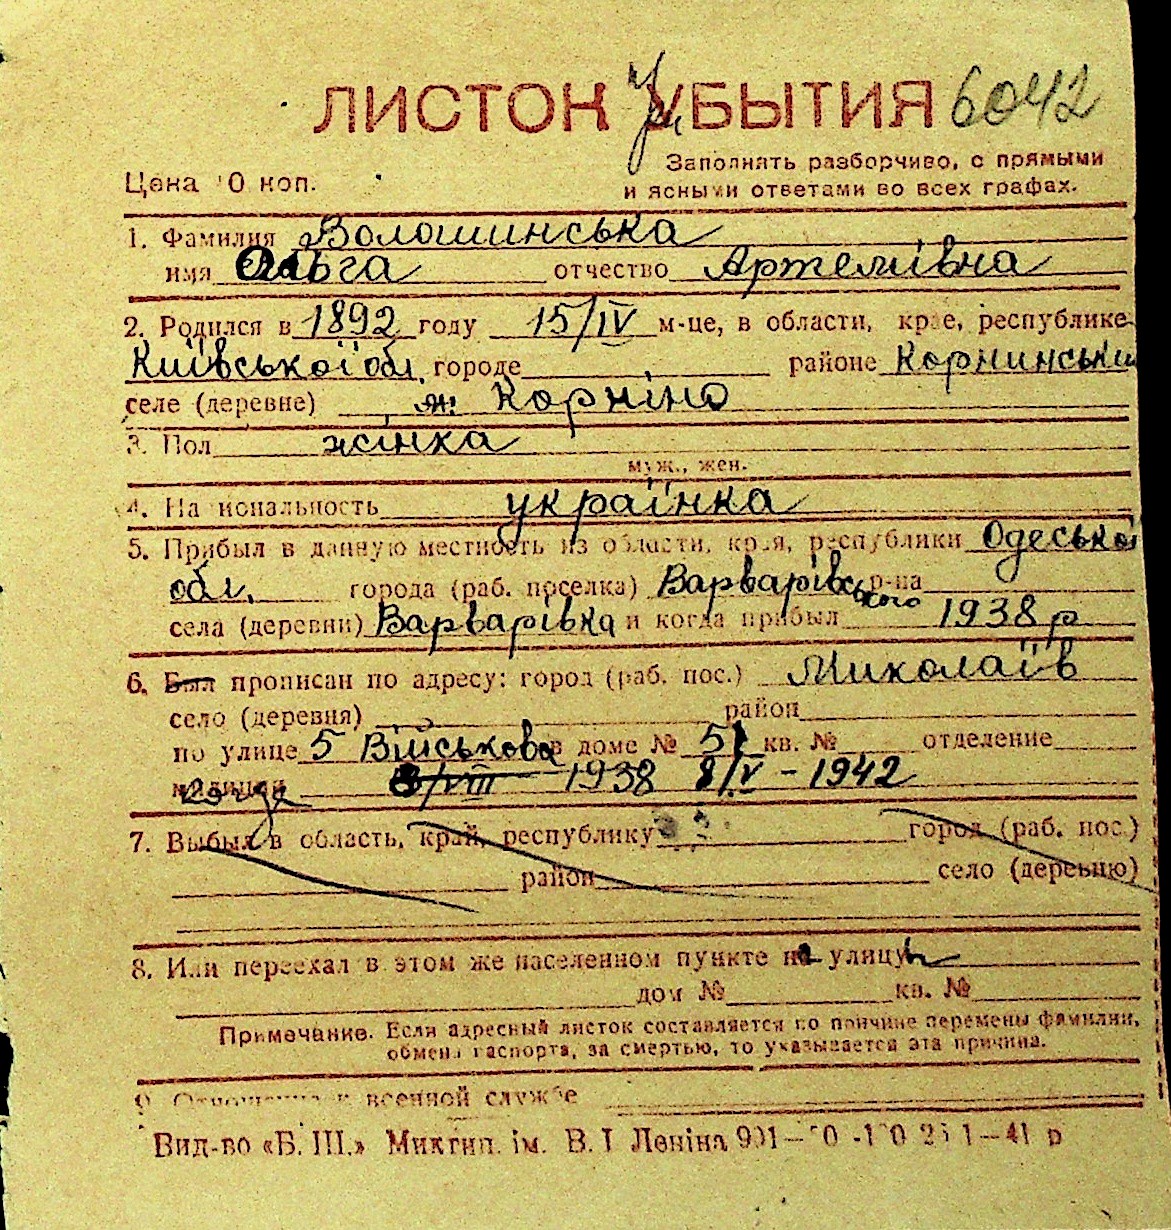 ЛИСТОК УБЫТИЯ 6042
Заполнять разборчиво, с прямыми
Цена 0 коп.
и ясными ответами во всех графах.
1. Фамилия Волошинська
имя Ольга отчество Артемівна
2. Родился в 1892 году 15/IV м-це, в области, крае, республике
Київської обл. городе районе Корнинський
селе (деревне) м. Корніно
3. Пол жінка
муж., жен.
4. Национальность українка
5. Прибыл в данную местность из области, края, республики Одеської
обл. города (раб. поселка) Варварівського р-на
села (деревни) Варварівка и когда прибыл 1938 р
6. Был прописан по адресу: город (раб. пос.) Миколаїв
село (деревня) район
по улице 5 Військова в доме № 51 кв. № отделение
милиции 8/VIII 1938 8/IV - 1942
7. Выбыл в область, край, республику город (раб. пос.)
район село (деревню)
8. Или переехал в этом же населенном пункте на улицу
дом № кв. №
Примечание. Если адресный листок составляется по причине перемены фамилии,
обмена паспорта, за смертью, то указывается эта причина.
9. Отношение к военной службе
Вид-во «Б. Ш.» Миктип. ім. В. І Леніна